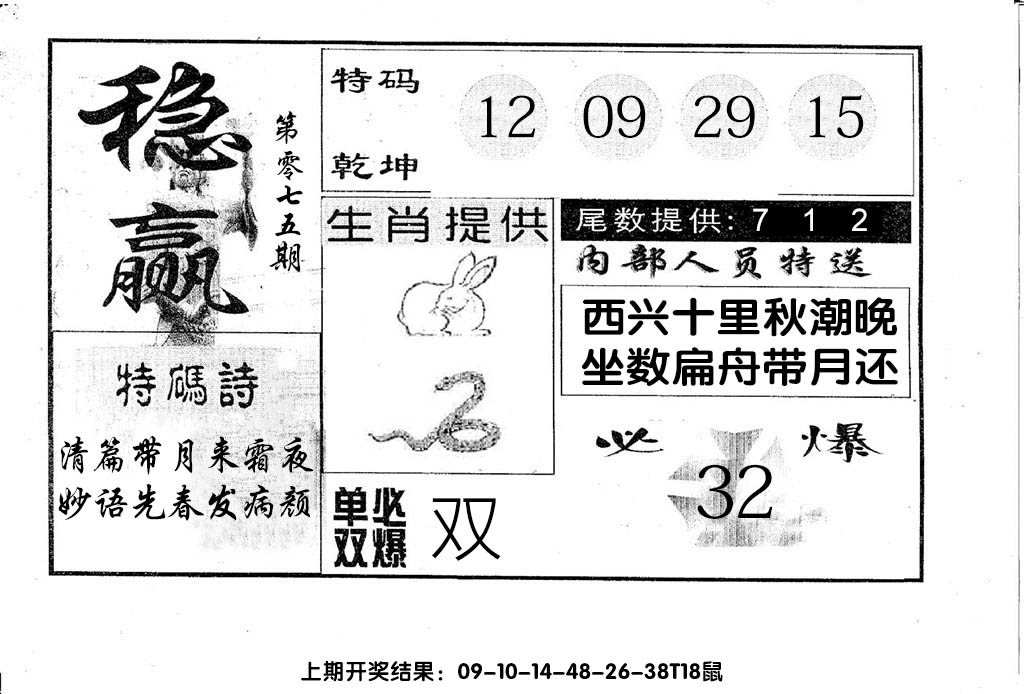 稳赢
第零七五期
特码诗
清篇带月来霜夜
妙语先春发病颜
特码
乾坤
12 09 29 15
生肖提供
单双
必爆
双
尾数提供: 7 1 2
内部人员特送
西兴十里秋潮晚
坐数扁舟带月还
必爆
32
上期开奖结果：09-10-14-48-26-38T18鼠